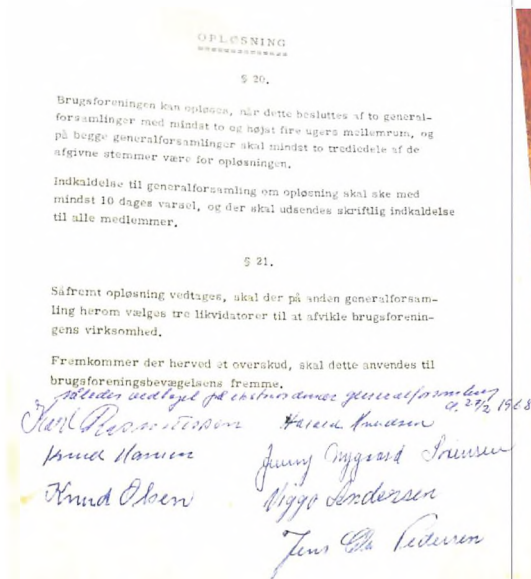 OPLØSNING
§ 20.
Brugsforeningen kan opløses, når dette besluttes af to general-
forsamlinger med mindst to og højst fire ugers mellemrum, og
på begge generalforsamlinger skal mindst to trediedele af de
afgivne stemmer være for opløsningen.
Indkaldelse til generalforsamling om opløsning skal ske med
mindst 10 dages varsel, og der skal udsendes skriftlig indkaldelse
til alle medlemmer.
§ 21.
Såfremt opløsning vedtages, skal der på anden generalforsam-
ling herom vælges tre likvidatorer til at afvikle brugsforenin-
gens virksomhed.
Fremkommer der herved et overskud, skal dette anvendes til
brugsforeningsbevægelsens fremme.
således vedtaget på ekstraordinær generalforsamling
d. 27/2 1968
Karl Rasmussen Harald Knudsen
Knud Hansen Jenny Nygaard Sørensen
Knud Olsen Viggo Andersen
Jens Pedersen